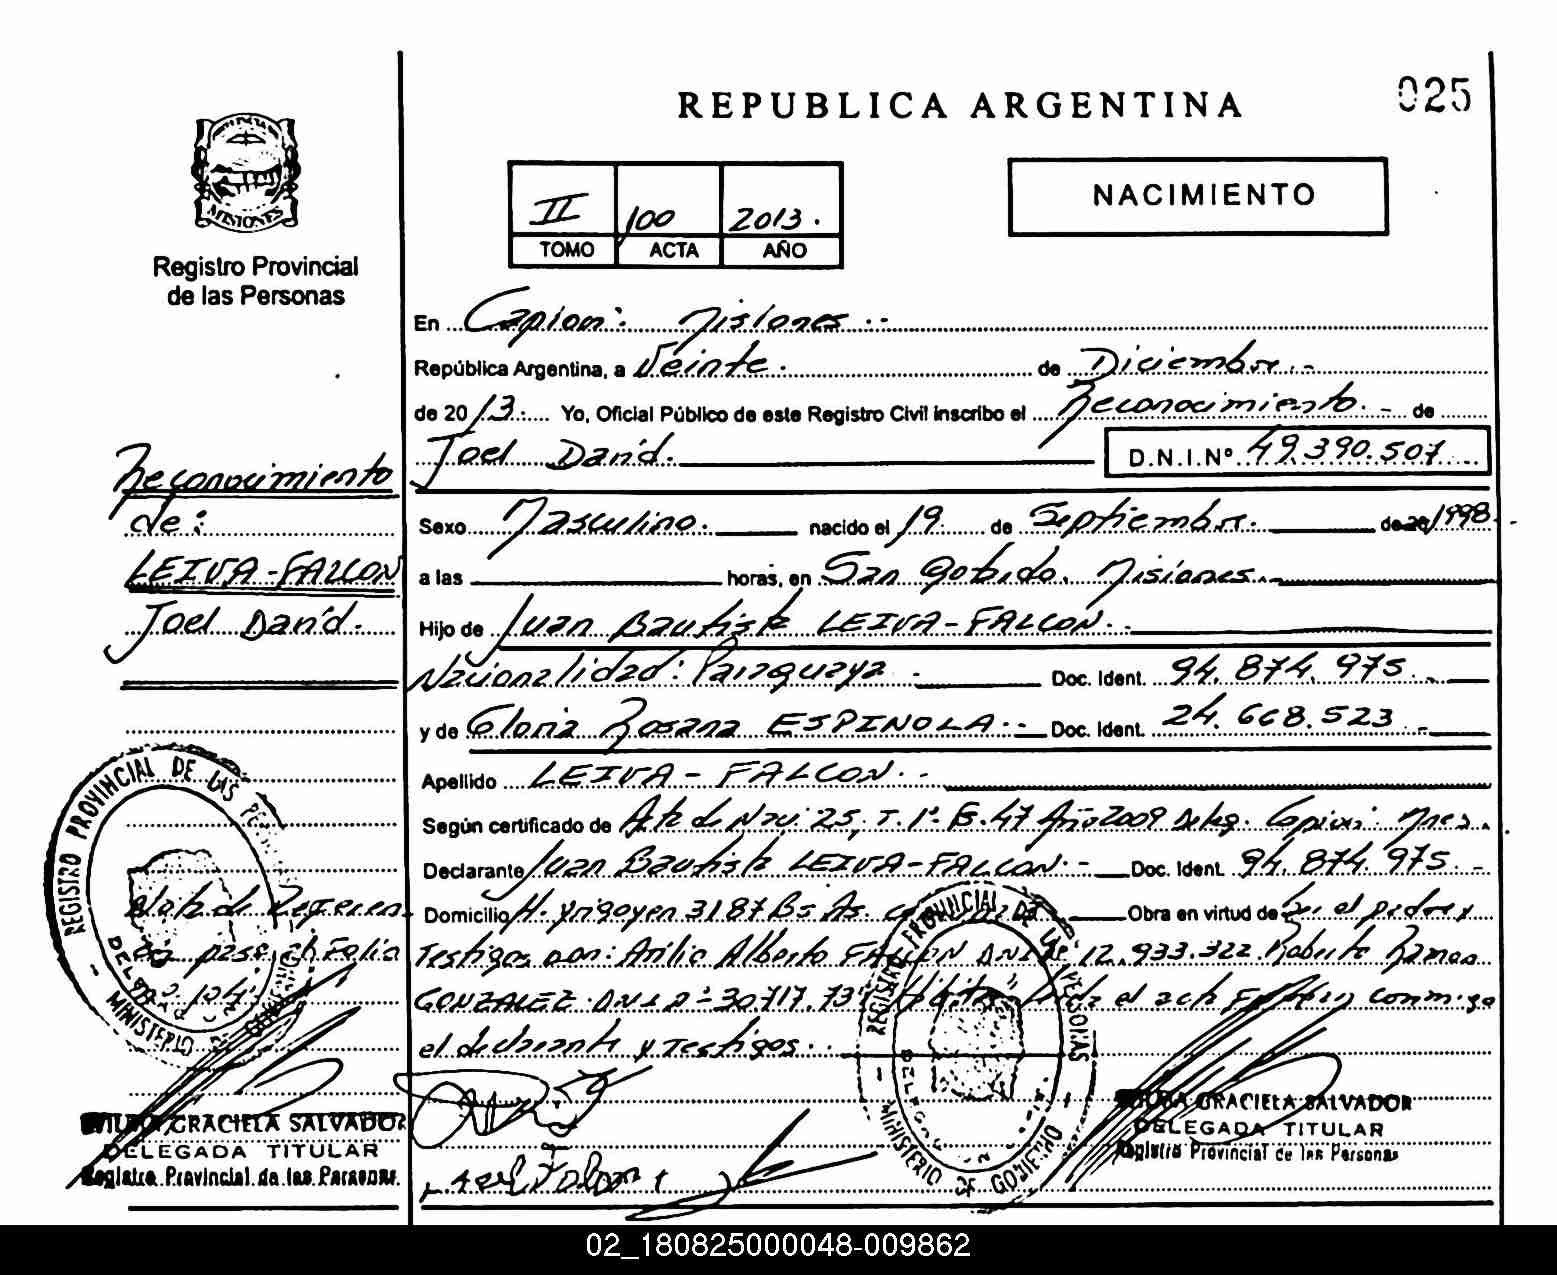 REPUBLICA ARGENTINA
025
MISIONES
Registro Provincial
de las Personas
II 100 2013.
TOMO ACTA AÑO
NACIMIENTO
En Capioví: Misiones
República Argentina, a Veinte. de Diciembre
de 2013. Yo, Oficial Público de este Registro Civil inscribo el Reconocimiento. de
Joel David. D.N.I.Nº 49.390.507
Sexo Masculino. nacido el 19 de Septiembre. de 20 1998
a las horas, en San Gotardo. Misiones.
Hijo de Juan Bautista LEIVA-FALCON.
Nacionalidad: Paraguaya Doc. Ident. 94.874.975
y de Gloria Rosana ESPINOLA Doc. Ident. 24.668.523
Apellido LEIVA-FALCON.
Según certificado de Acta de Nac: 25, T. 1º F. 47 Año 2009 Deleg. Capioví: Mnes.
Declarante Juan Bautista LEIVA-FALCON Doc. Ident. 94.874.975
Domicilio H. Yrigoyen 3187 Bs As. Obra en virtud de Ser el padre y
Testigos son: Alberto FALCON 12.933.322 Roberto Ramon
GONZALEZ DNI Nº 30.717.73 el acta conmigo
el declarante y Testigos.
Reconocimiento
de:
LEIVA-FALCON
Joel David.
Nota de Referen
cia pasa al Folio
REGISTRO PROVINCIAL DE LAS PERSONAS
MINISTERIO DE GOBIERNO
GRACIELA SALVADOR
DELEGADA TITULAR
Registro Provincial de las Personas
REGISTRO PROVINCIAL DE LAS PERSONAS
MINISTERIO DE GOBIERNO
GRACIELA SALVADOR
DELEGADA TITULAR
Registro Provincial de las Personas
02_180825000048-009862